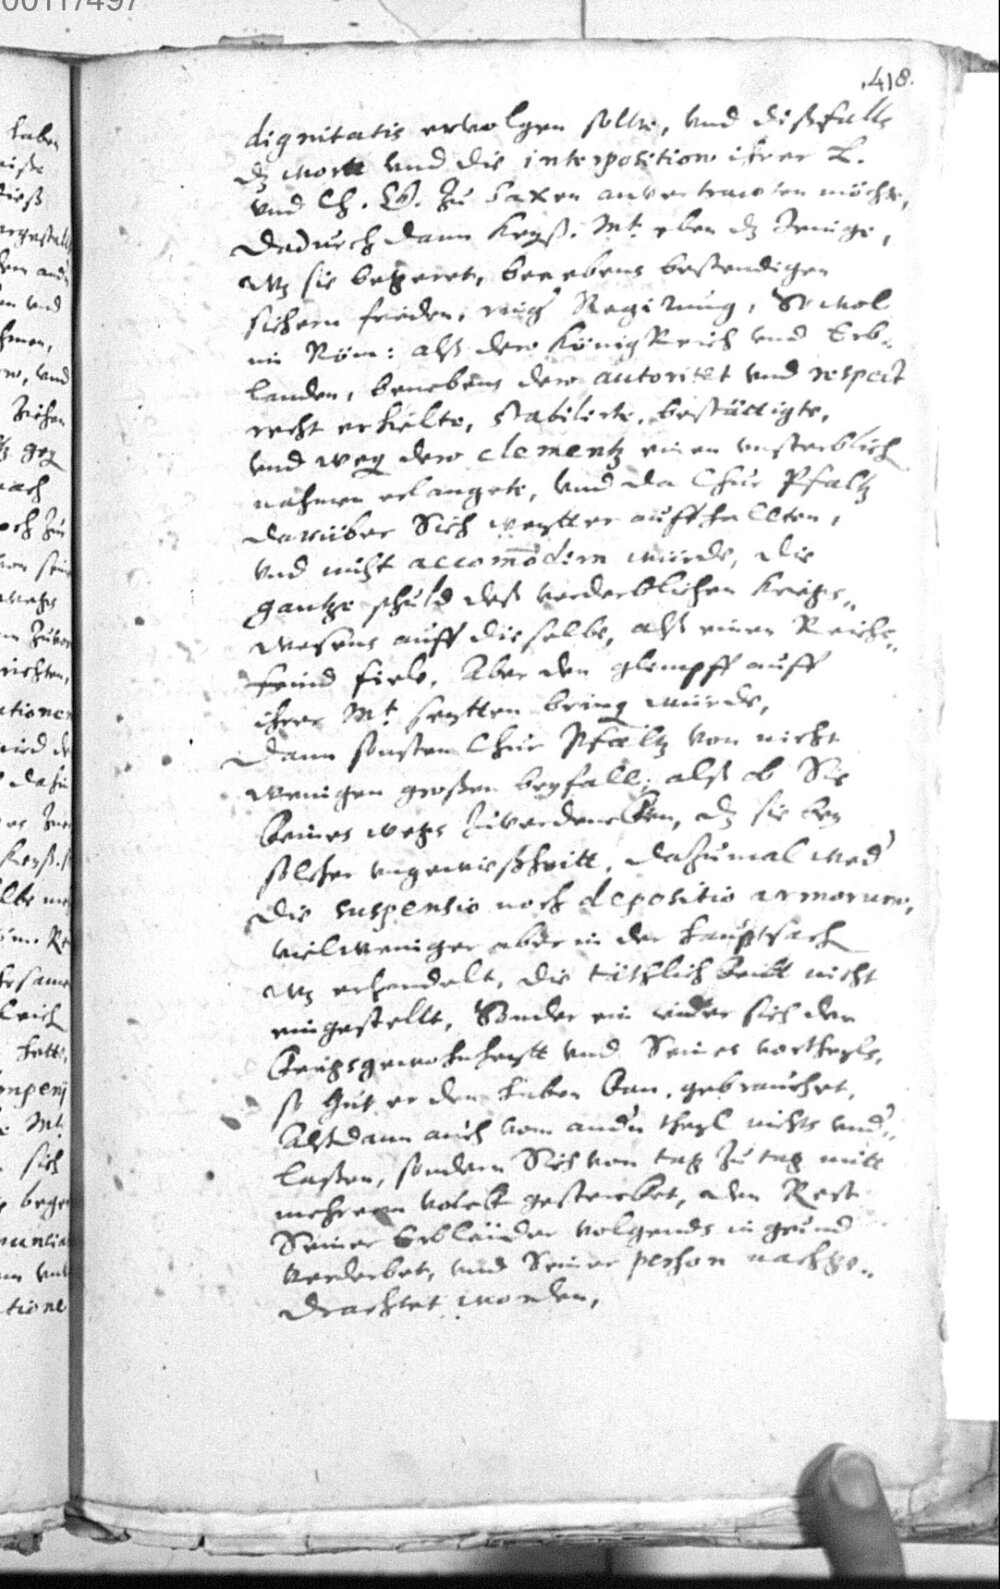 00117497
418.
dignitatis ervolgen solte, und dißfalls
dz wortt und die interposition ihrer K.
und Ch. G. zu Saxen anvertrawten möchte,
Dadurch dann Keyß. Mt. eben dz Jenige,
wz sie begeret, benebens bestendigen
sichern frieden, Regirung, So wol
im Röm: alß dero KönigReich und Erb-
landen, benebens dero autoritet und respect
recht erhielte, stabilirte, bestättigte,
und weg dero clementz einen unsterblich
nahmen erlangete, und da Chur Pfaltz
darüber Sich weytter auffhallten,
und nicht accomodirn würde, die
gantze schuld deß verderblichen Kriegs-
wesens auff dieselbe, alß einen Reichs-
feind fiele, Aber den glimpff auff
ihrer Mt. seytten bring würde,
Dann sonsten Chur Pfaltz von nicht
wenigen großen beyfall, alß ob Sie
keines wegs zuverdencken, dz sie bey
solcher ungewißheitt, dazumal wed
die suspensio noch depositio armorum,
vielweniger aber in der hauptsach
wz erhandelt, die täthlichkeitt nicht
eingestellt, Sonder ein ieder sich der
kriegsgewohnheytt und Seines vortheyls,
so gut er den haben kan, gebrauchet,
Alßdann auch vom andn theyl nichts und-
laßen, sondern Sich von tag zu tag mitt
mehrerm volck gestercket, den Rest
Seiner Erbländer volgends in grund
verderbet, und Seiner person nachge-
drachtet worden,